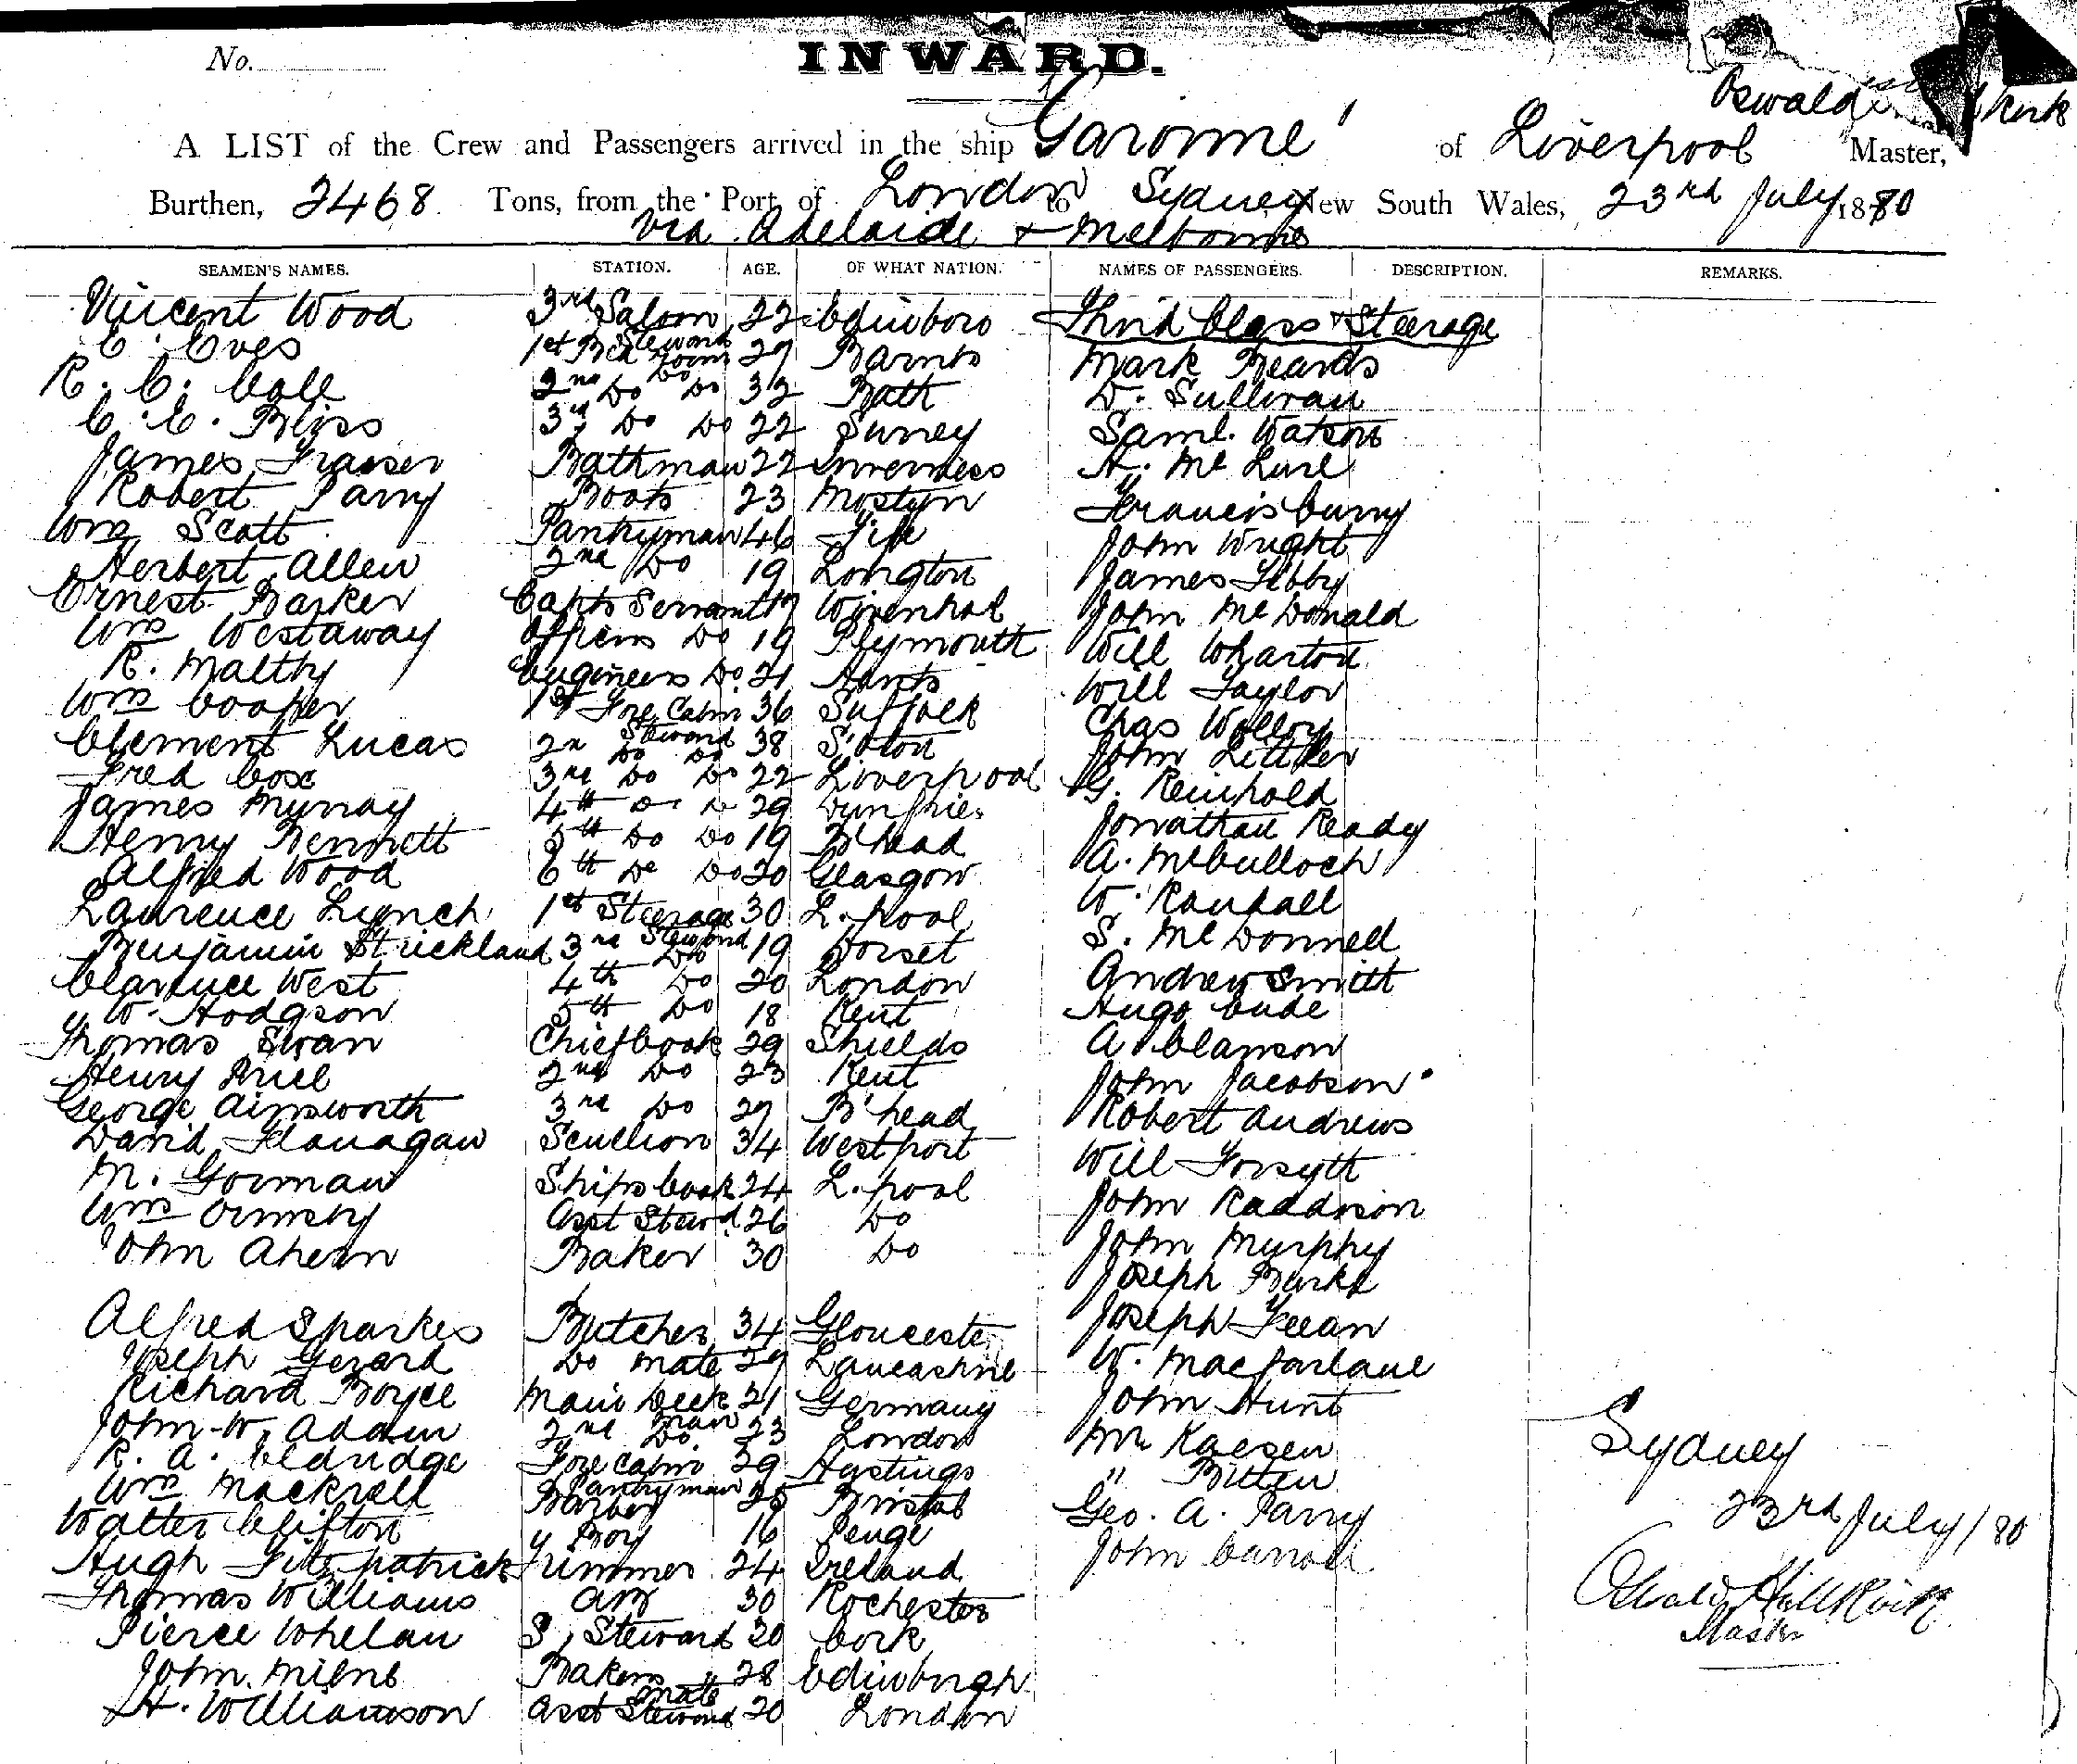 No.
INWARD.
Oswald
A LIST of the Crew and Passengers arrived in the ship 'Garonne' of Liverpool Master,
Burthen, 2468 Tons, from the Port of London to Sydney New South Wales, 23rd July 1880
Via Adelaide & Melbourne
SEAMEN'S NAMES. STATION. AGE. OF WHAT NATION. NAMES OF PASSENGERS. DESCRIPTION. REMARKS.
Vincent Wood 3rd Saloon 22 Edinboro Third Class & Steerage
C. Eves 1st Bed Rooms Steward 27 Barnes Mark Beards
R. C. Cole 2nd Do Do 32 Bath D. Sullivan
C. E. Bliss 3rd Do Do 22 Surrey Saml. Watson
James Fraser Bathman 22 Inverness H. McLure
Robert Parry Boots 23 Mostyn Francis Curry
Wm Scott Pantryman 46 Fife John Wright
Herbert Allen 2nd Do 19 Longton James Libby
Ernest Barker Capts Servant 17 Wivenhoe John McDonald
Wm Westaway Officers Do 19 Plymouth Will Wharton
R. Maltby Engineers Do 21 Hants Will Taylor
Wm Cooper 1st Fore Cabin Steward 36 Suffolk Chas
Clement Lucas 2n Do Do 38 S'oton John
Fred Cox 3rd Do Do 22 Liverpool G. Reinhold
James Murray 4th Do Do 29 Dumfries Jonathan Ready
Henry Bennett 5th Do Do 19 B'head A. McCulloch
Alfred Wood 6th Do Do 20 Glasgow W. Randall
Laurence Lynch 1st Steerage Steward 30 L.pool S. McDonnell
Benjamin Strickland 3rd Do 19 Dorset Andrew Smith
Clarence West 4th Do 20 London Hugo Cude
W. Hodgson 5th Do 18 Kent A Clamson
Thomas Swan Chief Cook 29 Shields John Jacobson
Henry Friel 2nd Do 23 Kent Robert Andrews
George Ainsworth 3rd Do 27 B'head Will Forsyth
David Flanagan Scullion 34 Westport John Raddison
M. Gorman Ships Cook 24 L.pool John Murphy
Wm Ormsby Asst Steward 26 Do Joseph Burke
John Ahern Baker 30 Do Joseph
Alfred Sparkes Butcher 34 Gloucester W. Macfarlane
Joseph Gerard Do Mate 29 Lancashire John Hunt
Richard Boyce Main Deck Man 21 Germany Mr Kaesen
John W. Adam 2nd Do. 23 London "
R. A. Eldridge Fore Cabin Pantryman 29 Hastings Geo. A. Parry
Wm Mackrell Barber 25 Bristol John Carroll
Walter Clifton Boy 16 Penge
Hugh Fitzpatrick Trimmer 24 Ireland
Thomas Williams AB 30 Rochester
Pierce Whelan S, Steward 20 Cork
John Milne Bakers Mate 28 Edinburgh
H. Williamson Asst Steward 20 London
Sydney
23rd July / 80
Oswald Hillkirk
Master